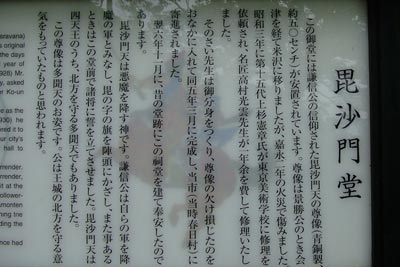 毘沙門堂
この御堂には謙信公の信仰された毘沙門天の尊像(青銅製
約五〇センチ)が安置されています。尊像は景勝公のとき会
津を経て米沢に移りましたが、嘉永二年の火災で傷みました
昭和三年に第十五代上杉憲章氏が東京美術学校に修理を
依頼され、名匠高村光雲先生が一年余を費して修理いたし
ました。
そのさい先生は御分身をつくり、尊像の欠け損じたのを
おなかに入れて同五年二月に完成し、当市(当時春日村)に
寄進されました。
翌六年十二月に、昔の堂跡にこの祠堂を建て奉安したので
あります。
毘沙門天は悪魔を降す神です。謙信公は自らの軍を降
魔の軍とみなし、毘の字の旗を陣頭にかざし、また事ある
ときはこの堂前で諸将に誓を立てさせました。毘沙門天は
四天王のうち、北方を守る多聞天でもありました。
この尊像は多聞天のお姿です。公は王城の北方を守る意
気をもっていたものと思われます。